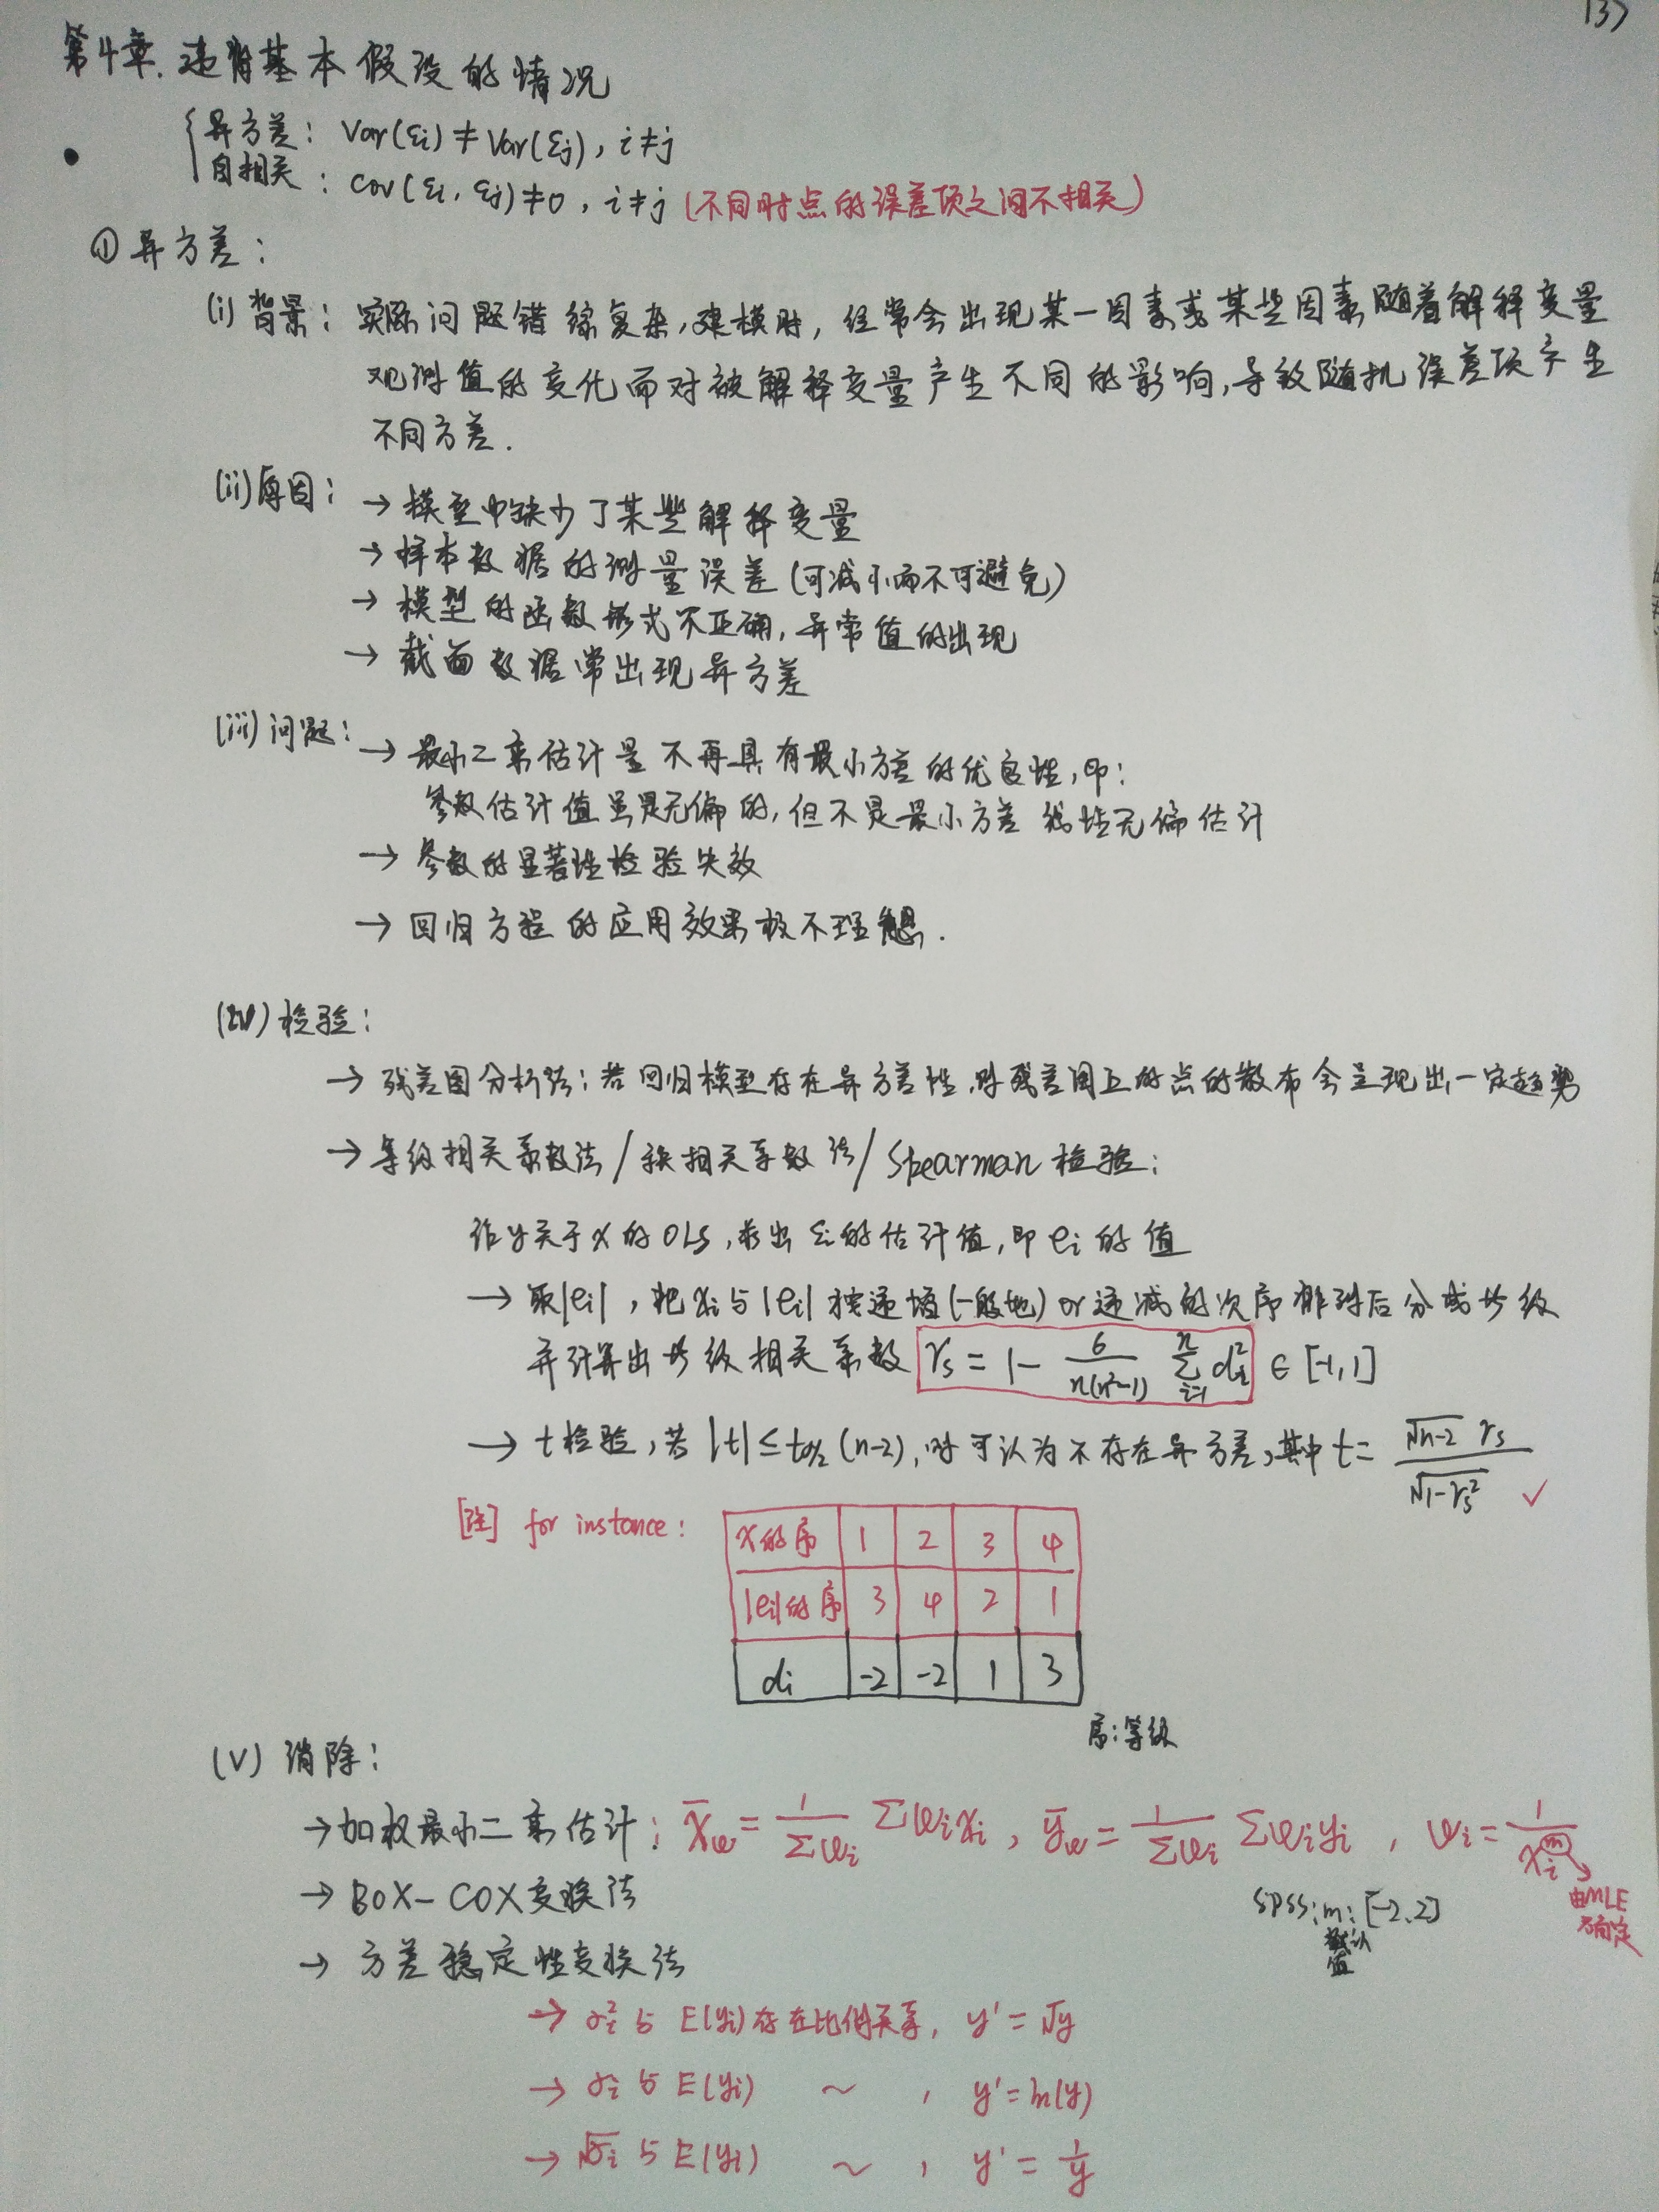 137
第4章. 违背基本假设的情况
异方差: Var(εi) ≠ Var(εj), i≠j
自相关: Cov(εi, εj) ≠ 0, i≠j (不同时点的误差项之间不相关)
① 异方差:
(i) 背景: 实际问题错综复杂, 建模时, 经常会出现某一因素或某些因素随着解释变量
观测值的变化而对被解释变量产生不同的影响, 导致随机误差项产生
不同方差.
(ii) 原因: → 模型中缺少了某些解释变量
→ 样本数据的测量误差 (可减小而不可避免)
→ 模型的函数形式不正确, 异常值的出现
→ 截面数据常出现异方差
(iii) 问题: → 最小二乘估计量不再具有最小方差的优良性, 即:
参数估计值虽是无偏的, 但不是最小方差线性无偏估计
→ 参数的显著性检验失效
→ 回归方程的应用效果极不理想.
(iv) 检验:
→ 残差图分析法: 若回归模型存在异方差性, 则残差图上的点的散布会呈现出一定趋势
→ 等级相关系数法 / 秩相关系数法 / Spearman 检验:
作y关于x的OLS, 求出 εi的估计值, 即 ei 的值
→ 取|ei|, 把 xi 与 |ei| 按递增(一般地) or 递减的次序排列后分成等级
并计算出等级相关系数 rs = 1 - 6/(n(n²-1)) Σ(i=1→n) di² ∈ [-1,1]
→ t检验, 若 |t| ≤ tα/2 (n-2), 则可认为不存在异方差, 其中 t = √(n-2) rs / √(1-rs²) ✓
[注] for instance:
x的序 1 2 3 4
|ei|的序 3 4 2 1
di -2 -2 1 3
序:等级
(v) 消除:
→ 加权最小二乘估计: x̄w = 1/Σwi Σwixi, ȳw = 1/Σwi Σwiyi, wi = 1/xi^m
由MLE
确定
SPSS: m: [-2, 2]
默认
值
→ BOX-COX变换法
→ 方差稳定性变换法
→ σi² 与 E(yi) 存在比例关系, y' = √y
→ σi 与 E(yi) ~ , y' = ln(y)
→ √σi 与 E(yi) ~ , y' = 1/y